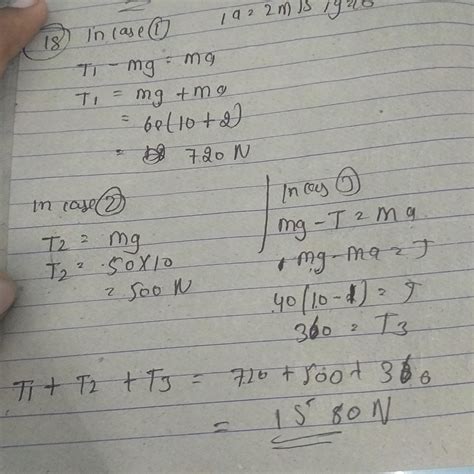 a = 2m/s, g = 10
(18) In case (1)
T1 - mg = ma
T1 = mg + ma
= 60(10+2)
= 720 N
In case (2)
T2 = mg
T2 = 50×10
= 500 N
In cas (3)
mg - T = ma
mg - ma = T
40(10-1) = T
360 = T3
T1 + T2 + T3 = 720 + 500 + 360
= 1580N